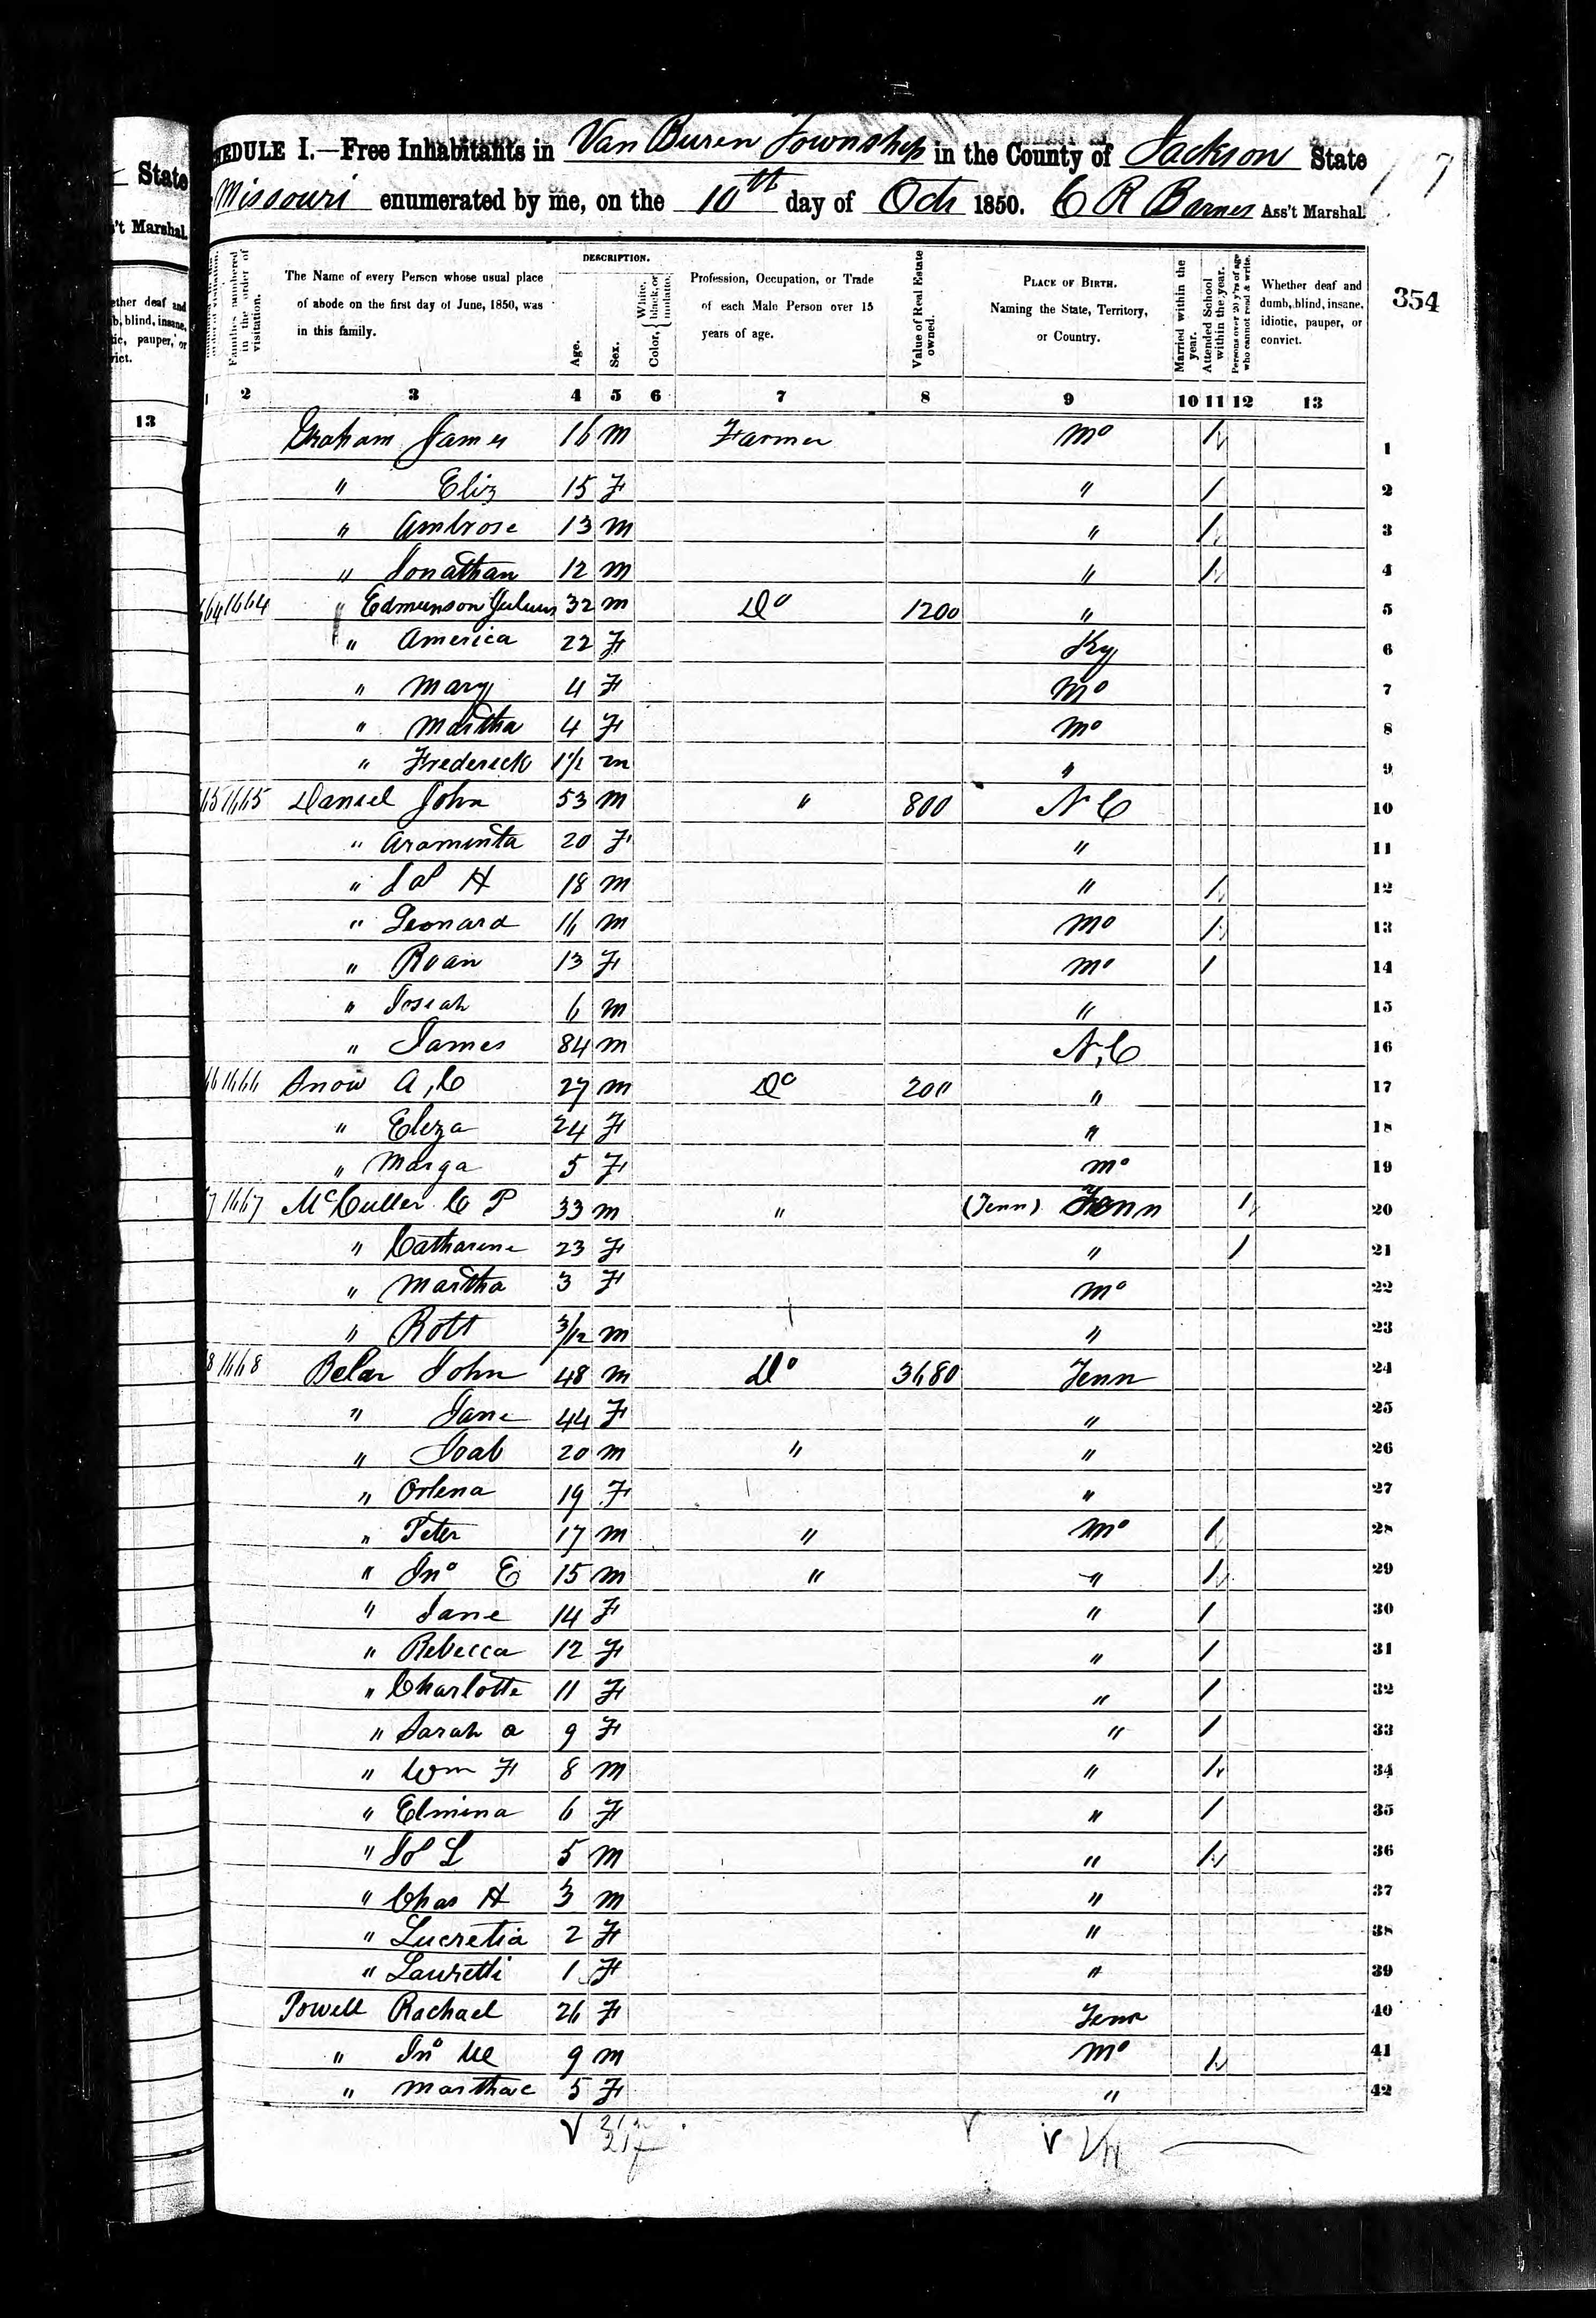 State
't Marshal.
ether deaf and
b, blind, insane,
tic, pauper, or
vict.
13
EDULE I.—Free Inhabitants in Van Buren Township in the County of Jackson State
Missouri enumerated by me, on the 10th day of Oct 1850. C R Barnes Ass't Marshal.
354
Families numbered in the order of visitation.
The Name of every Person whose usual place of abode on the first day of June, 1850, was in this family.
DESCRIPTION.
Age.
Sex.
Color, { White, black, or mulatto.
Profession, Occupation, or Trade of each Male Person over 15 years of age.
Value of Real Estate owned.
PLACE OF BIRTH. Naming the State, Territory, or Country.
Married within the year.
Attended School within the year.
Persons over 20 y'rs of age who cannot read & write.
Whether deaf and dumb, blind, insane, idiotic, pauper, or convict.
1 2 3 4 5 6 7 8 9 10 11 12 13
Graham James 16 m Farmer Mo 1 1
" Eliz 15 F " 1 2
" Ambrose 13 m " 1 3
" Jonathan 12 m " 1 4
1664 " Edmunson Julius 32 m Do 1200 " 5
" America 22 F Ky 6
" Mary 4 F Mo 7
" Martha 4 F Mo 8
" Frederick m " 9
1665 Daniel John 53 m " 800 N C 10
" Araminta 20 F " 11
" H 18 m " 1 12
" Leonard 16 m Mo 1 13
" Roan 13 F Mo 1 14
" Josiah 6 m " 15
" James 84 m N, C 16
1666 Snow A, C 27 m Do 200 " 17
" Eliza 24 F " 18
" Marga 5 F Mo 19
1667 McCuller C P 33 m " (Tenn) Tenn 1 20
" Catharine 23 F " 1 21
" Martha 3 F Mo 22
" Robt 3/12 m " 23
1668 Belar John 48 m Do 3680 Tenn 24
" Jane 44 F " 25
" Joab 20 m " " 26
" Orlena 19 F " 27
" Peter 17 m " Mo 1 28
" Jno E 15 m " " 1 29
" Jane 14 F " 1 30
" Rebecca 12 F " 1 31
" Charlotte 11 F " 1 32
" Sarah a 9 F " 1 33
" Wm F 8 m " 1 34
" Elmina 6 F " 1 35
" L 5 m " 1 36
" Chas H 3 m " 37
" Lucretia 2 F " 38
" Lauretti 1 F " 39
Powell Rachael 26 F Tenn 40
" Jno 9 m Mo 1 41
" Martha c 5 F " 42